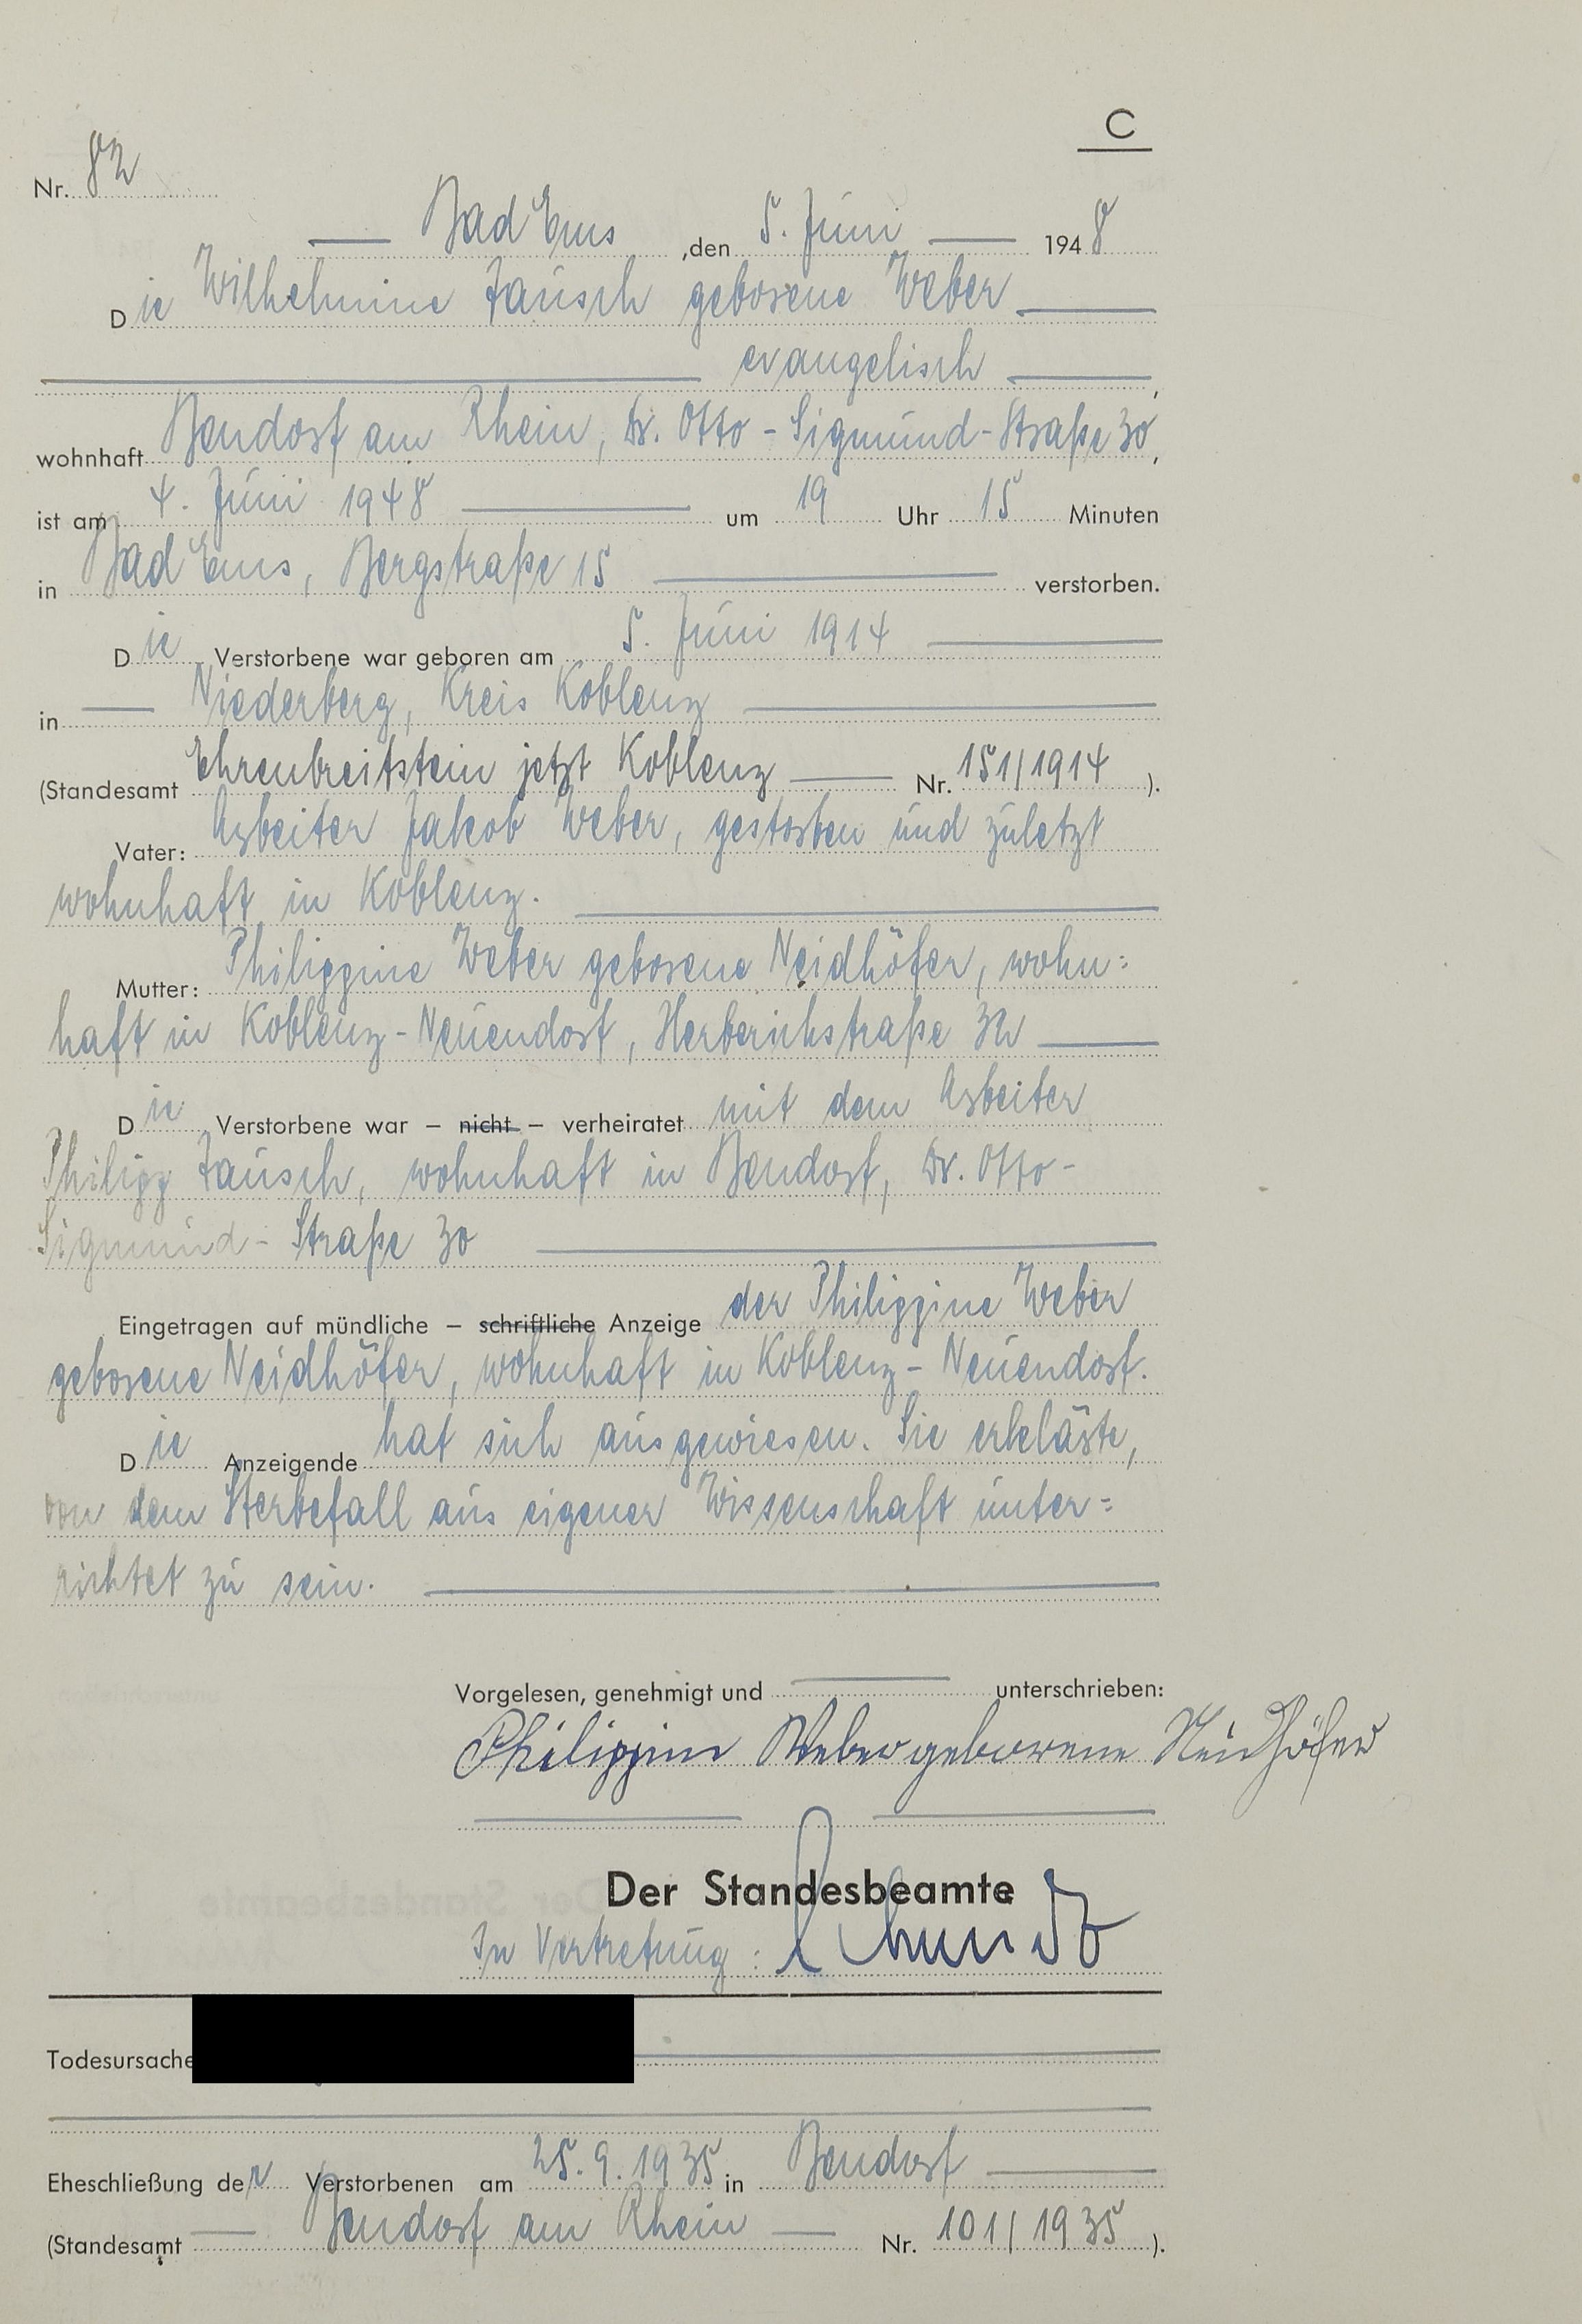 C
Nr. 82
Bad Ems, den 5. Juni 1948
Die Wilhelmine Tausch geborene Weber
evangelisch,
wohnhaft Bendorf am Rhein, Dr. Otto-Sigmund-Straße 30,
ist am 4. Juni 1948 um 19 Uhr 15 Minuten
in Bad Ems, Bergstraße 15 verstorben.
Die Verstorbene war geboren am 5. Juni 1914
in Niederberg, Kreis Koblenz
(Standesamt Ehrenbreitstein jetzt Koblenz Nr. 151/1914).
Vater: Arbeiter Jakob Weber, gestorben und zuletzt
wohnhaft in Koblenz.
Mutter: Philippine Weber geborene Neidhöfer, wohn=
haft in Koblenz-Neuendorf, Herberichstraße 32
Die Verstorbene war – nicht – verheiratet mit dem Arbeiter
Philipp Tausch, wohnhaft in Bendorf, Dr. Otto-
Sigmund-Straße 30
Eingetragen auf mündliche – schriftliche Anzeige der Philippine Weber
geborene Neidhöfer, wohnhaft in Koblenz-Neuendorf.
Die Anzeigende hat sich ausgewiesen. Sie erklärte,
von dem Sterbefall aus eigener Wissenschaft unter=
richtet zu sein.
Vorgelesen, genehmigt und unterschrieben:
Philippine Weber geborene Neidhöfer
Der Standesbeamte
In Vertretung:
Todesursache
Eheschließung der Verstorbenen am 25.9.1935 in Bendorf
(Standesamt Bendorf am Rhein Nr. 101/1935).